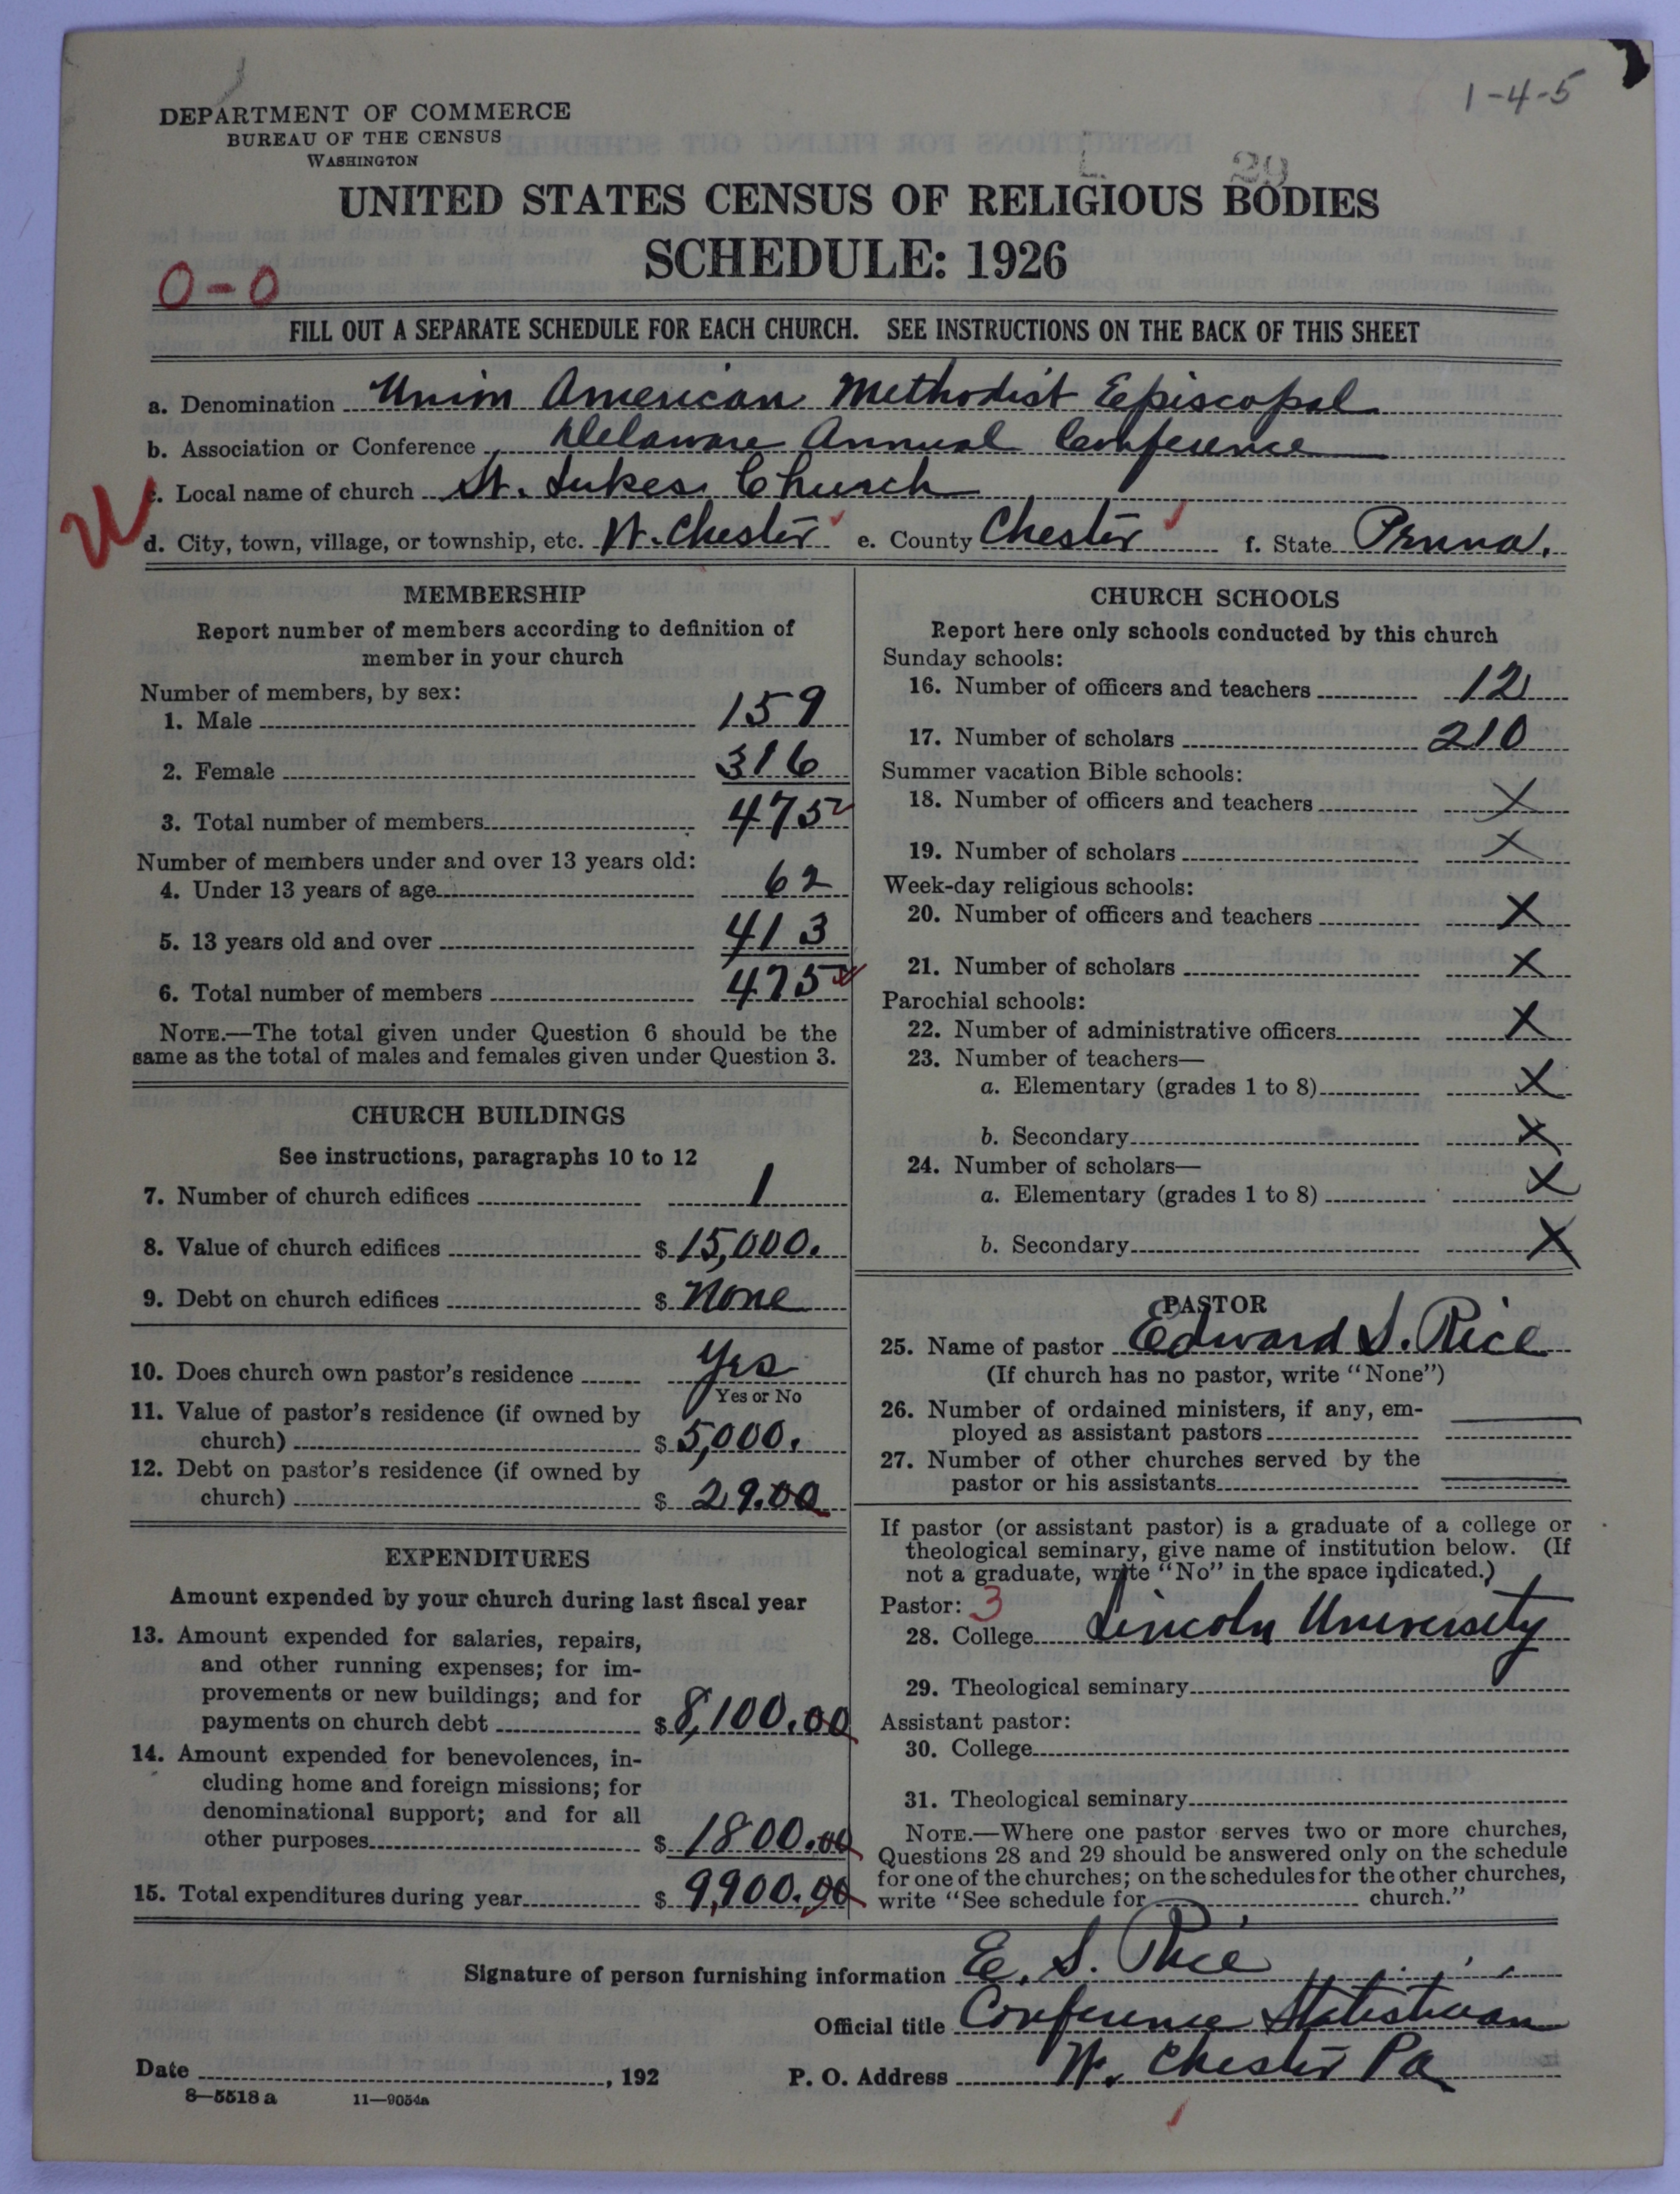 1-4-5
DEPARTMENT OF COMMERCE
BUREAU OF THE CENSUS
WASHINGTON
29
UNITED STATES CENSUS OF RELIGIOUS BODIES
SCHEDULE: 1926
0-0
FILL OUT A SEPARATE SCHEDULE FOR EACH CHURCH. SEE INSTRUCTIONS ON THE BACK OF THIS SHEET
a. Denomination Union American Methodist Episcopal
b. Association or Conference Delaware Annual Conference
c. Local name of church St. Lukes Church
d. City, town, village, or township, etc. W. Chester e. County Chester f. State Penna.
MEMBERSHIP
Report number of members according to definition of
member in your church
Number of members, by sex:
1. Male 159
2. Female 316
3. Total number of members 475
Number of members under and over 13 years old:
4. Under 13 years of age 62
5. 13 years old and over 413
6. Total number of members 475
NOTE.—The total given under Question 6 should be the
same as the total of males and females given under Question 3.
CHURCH BUILDINGS
See instructions, paragraphs 10 to 12
7. Number of church edifices 1
8. Value of church edifices $ 15,000.
9. Debt on church edifices $ None
10. Does church own pastor's residence Yes
Yes or No
11. Value of pastor's residence (if owned by
church) $ 5,000.
12. Debt on pastor's residence (if owned by
church) $ 29.00
EXPENDITURES
Amount expended by your church during last fiscal year
13. Amount expended for salaries, repairs,
and other running expenses; for im-
provements or new buildings; and for
payments on church debt $ 8,100.00
14. Amount expended for benevolences, in-
cluding home and foreign missions; for
denominational support; and for all
other purposes $ 1800.00
15. Total expenditures during year $ 9,900.00
CHURCH SCHOOLS
Report here only schools conducted by this church
Sunday schools:
16. Number of officers and teachers 12
17. Number of scholars 210
Summer vacation Bible schools:
18. Number of officers and teachers X
19. Number of scholars X
Week-day religious schools:
20. Number of officers and teachers X
21. Number of scholars X
Parochial schools:
22. Number of administrative officers X
23. Number of teachers—
a. Elementary (grades 1 to 8) X
b. Secondary X
24. Number of scholars—
a. Elementary (grades 1 to 8) X
b. Secondary X
PASTOR
25. Name of pastor Edward S. Rice
(If church has no pastor, write "None")
26. Number of ordained ministers, if any, em-
ployed as assistant pastors
27. Number of other churches served by the
pastor or his assistants
If pastor (or assistant pastor) is a graduate of a college or
theological seminary, give name of institution below. (If
not a graduate, write "No" in the space indicated.)
Pastor: 3
28. College Lincoln University
29. Theological seminary
Assistant pastor:
30. College
31. Theological seminary
NOTE.—Where one pastor serves two or more churches,
Questions 28 and 29 should be answered only on the schedule
for one of the churches; on the schedules for the other churches,
write "See schedule for church."
Signature of person furnishing information E. S. Rice
Official title Conference Statistician
Date , 192 P. O. Address W. Chester Pa
8—5518 a 11—9054a